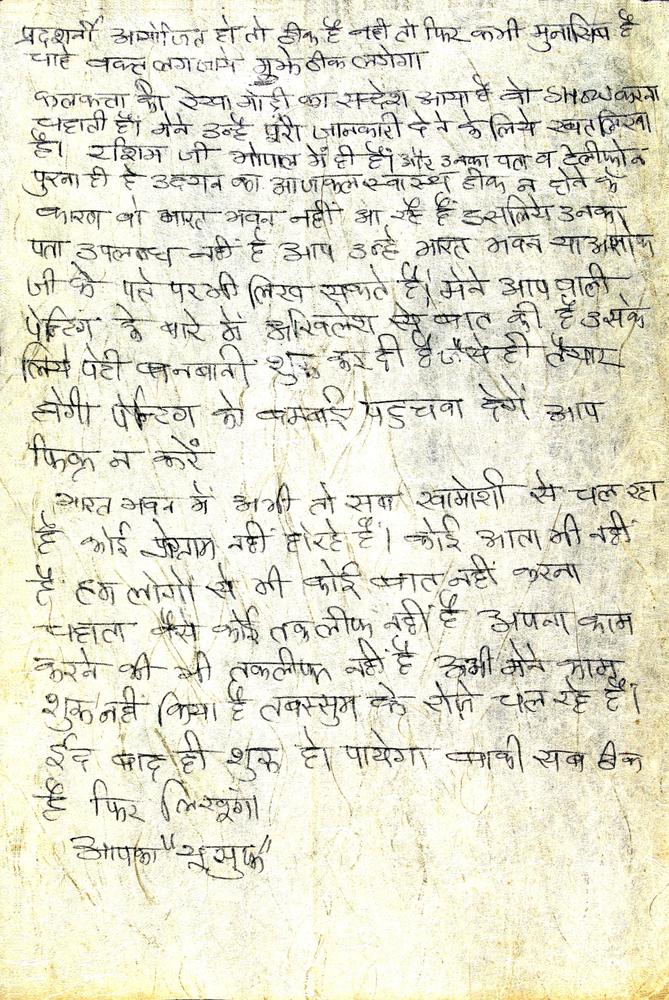 प्रदशर्नी आयोजित हो तो ठीक है नही तो फिर कभी मुनासिब है
चाहे वक्त लग जाये मुझे ठीक लगेगा
कलकत्ता की रेखा गोडी का सन्देश आया है वो करना
चहाती है। मेने उन्हें पुरी जानकारी देने के लिये खत लिखा
है। रश्मि जी भोपाल में ही हैं। और उनका पता व टेलीफोन
पुराना ही है उदयन का आजकल स्वास्थ ठीक न होने के
कारण वो भारत भवन नहीं आ रहे हैं इसलिये उनका
पता उपलबध नही है आप उन्हे भारत भवन या अशोक
जी के पते पर भी लिख सकते हैं। मेने आप वाली
पेन्टिग के बारे में अखिलेश से बात की है उसके
लिये पेटी बनबानी शुरू कर दी है जैसे ही तैयार
होगी पेन्टिग को बम्बई पहुचवा देगें आप
फिक्र न करें
भारत भवन में अभी तो सब खामोशी से चल रहा
है कोई प्रोग्राम नहीं हो रहे है। कोई आता भी नहीं
है हम लोगो से भी कोई बात नहीं करना
चहाता वैसे कोई तकलीफ नहीं है अपना काम
करने की भी तकलीफ नहीं है अभी मेने काम
शुरू नहीं किया है तबस्सुम के रोजे चल रहे हैं।
ईद बाद ही शुरू हो पायेगा बाकी सब ठीक
है फिर लिखूंगा
आपका "यूसुफ"